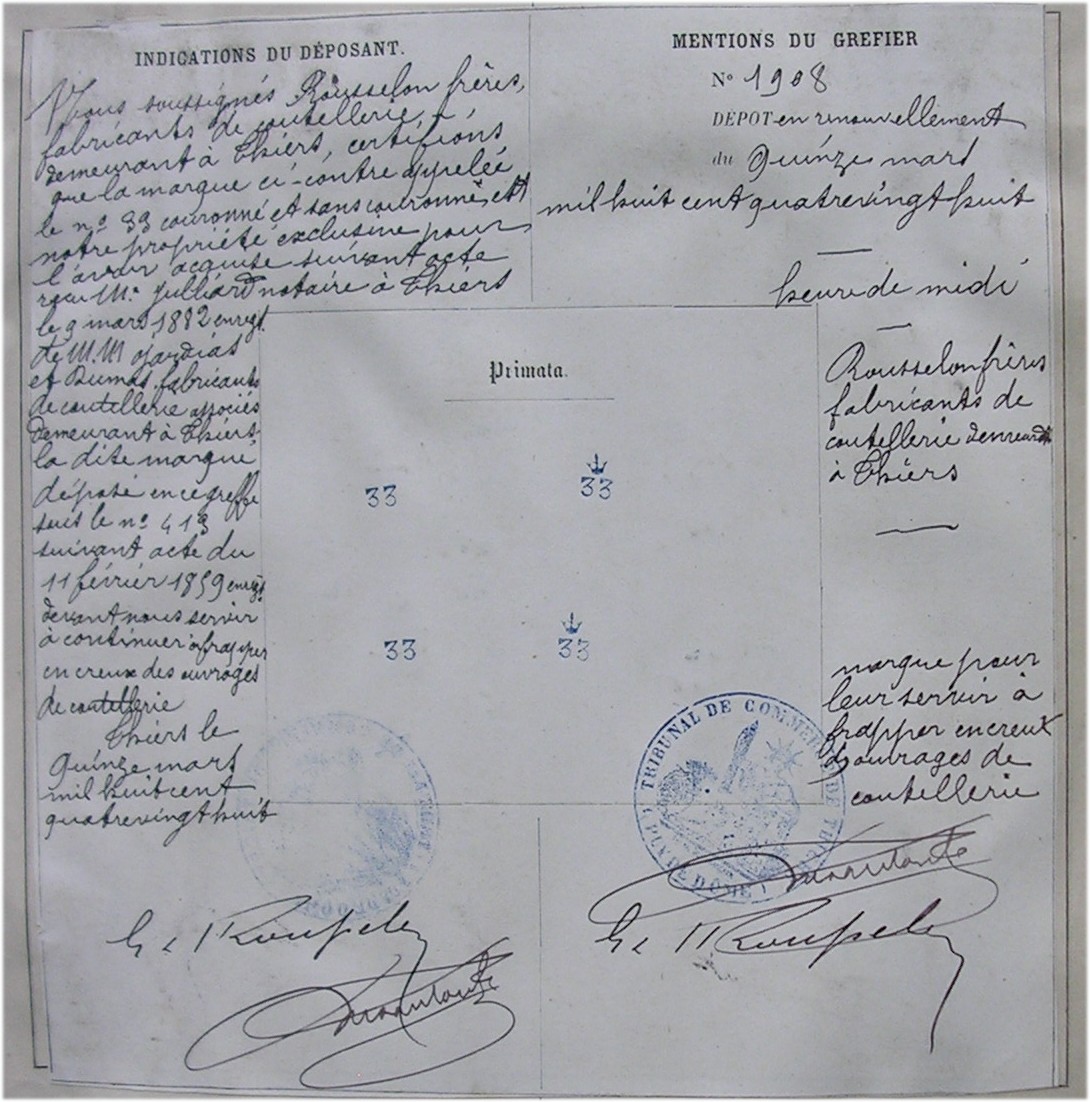 INDICATIONS DU DÉPOSANT.
Nous soussignés Rousselon frères,
fabricants de coutellerie,
demeurant à Thiers, certifions
que la marque ci-contre appelée
le nº 33 couronné et sans couronne, est
notre propriété exclusive pour
l'avoir acquise suivant acte
reçu Mᵉ Julliard notaire à Thiers
le 9 mars 1882 enregt.
de M.M Ojardias
et Dumas, fabricants
de coutellerie associés
demeurant à Thiers
la dite marque
déposé en ce greffe
sous le nº 413
suivant acte du
11 février 1859 enregt.
devant nous servir
à continuer à frapper
en creux des ouvrages
de coutellerie
Thiers le
Quinze mars
mil huit cent
quatrevingt huit
MENTIONS DU GREFIER
Nº 1908
DÉPOT en renouvellement
du Quinze mars
mil huit cent quatrevingt huit
heure de midi
Rousselon frères
fabricants de
coutellerie demeurant
à Thiers
marque pour
leur servir à
frapper en creux
d'ouvrages de
coutellerie
Primata.
33
33
33
33
TRIBUNAL DE COMMERCE DE THIERS
PUY DE DÔME